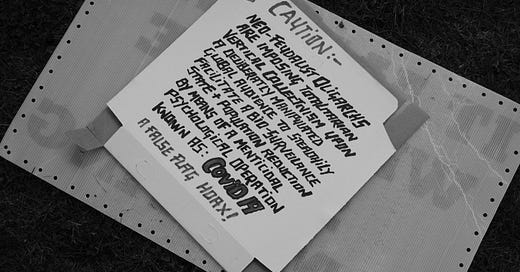 CAUTION:-
NEO-FEUDALIST OLIGARCHS
ARE IMPOSING TOTALITARIAN
VERTICAL COLLECTIVISM UPON
A DELIBERATELY MANIPULATED
GLOBAL AUDIENCE TO READILY
FACILITATE A BIO-SURVEILANCE
STATE + POPULATION REDUCTION
BY MEANS OF A MENTICIDAL
PSYCHOLOGICAL OPERATION
KNOWN AS: COVID 19
A FALSE FLAG HOAX!